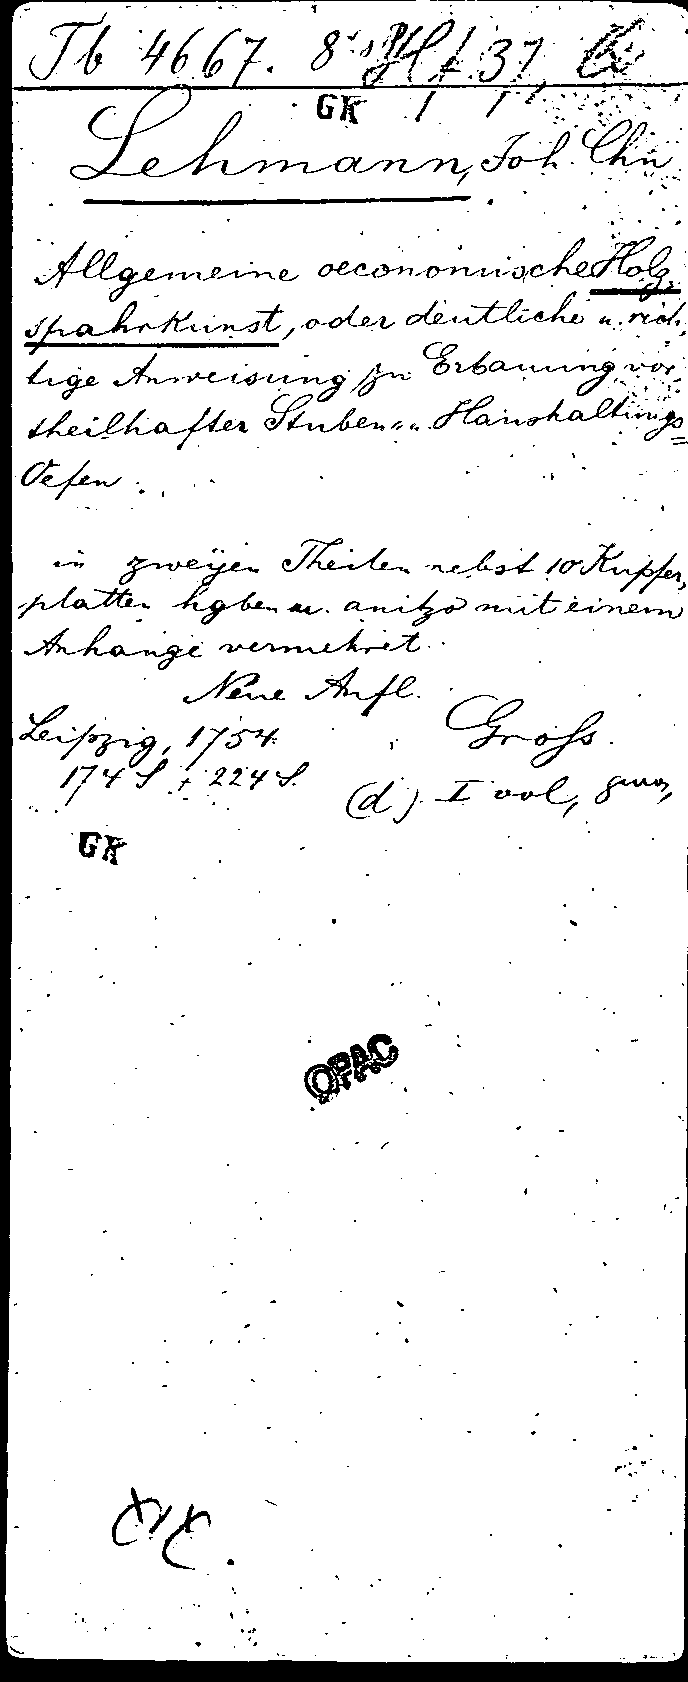 Tb 4667. 8°
GK
Lehmann, Joh. Chn
Allgemeine oeconomische Holz-
spahrkunst, oder deutliche u. rich-
tige Anweisung zu Erbauung vor-
theilhafter Stuben- u. Haushaltungs=
Oefen.
in zweyen Theilen nebst 10 Kupfer-
platten hgben u. anitzo mit einem
Anhange vermehret.
Neue Aufl.
Leipzig, 1754. Gross.
174 S + 224 S. (d) I vol,
GK
OPAC